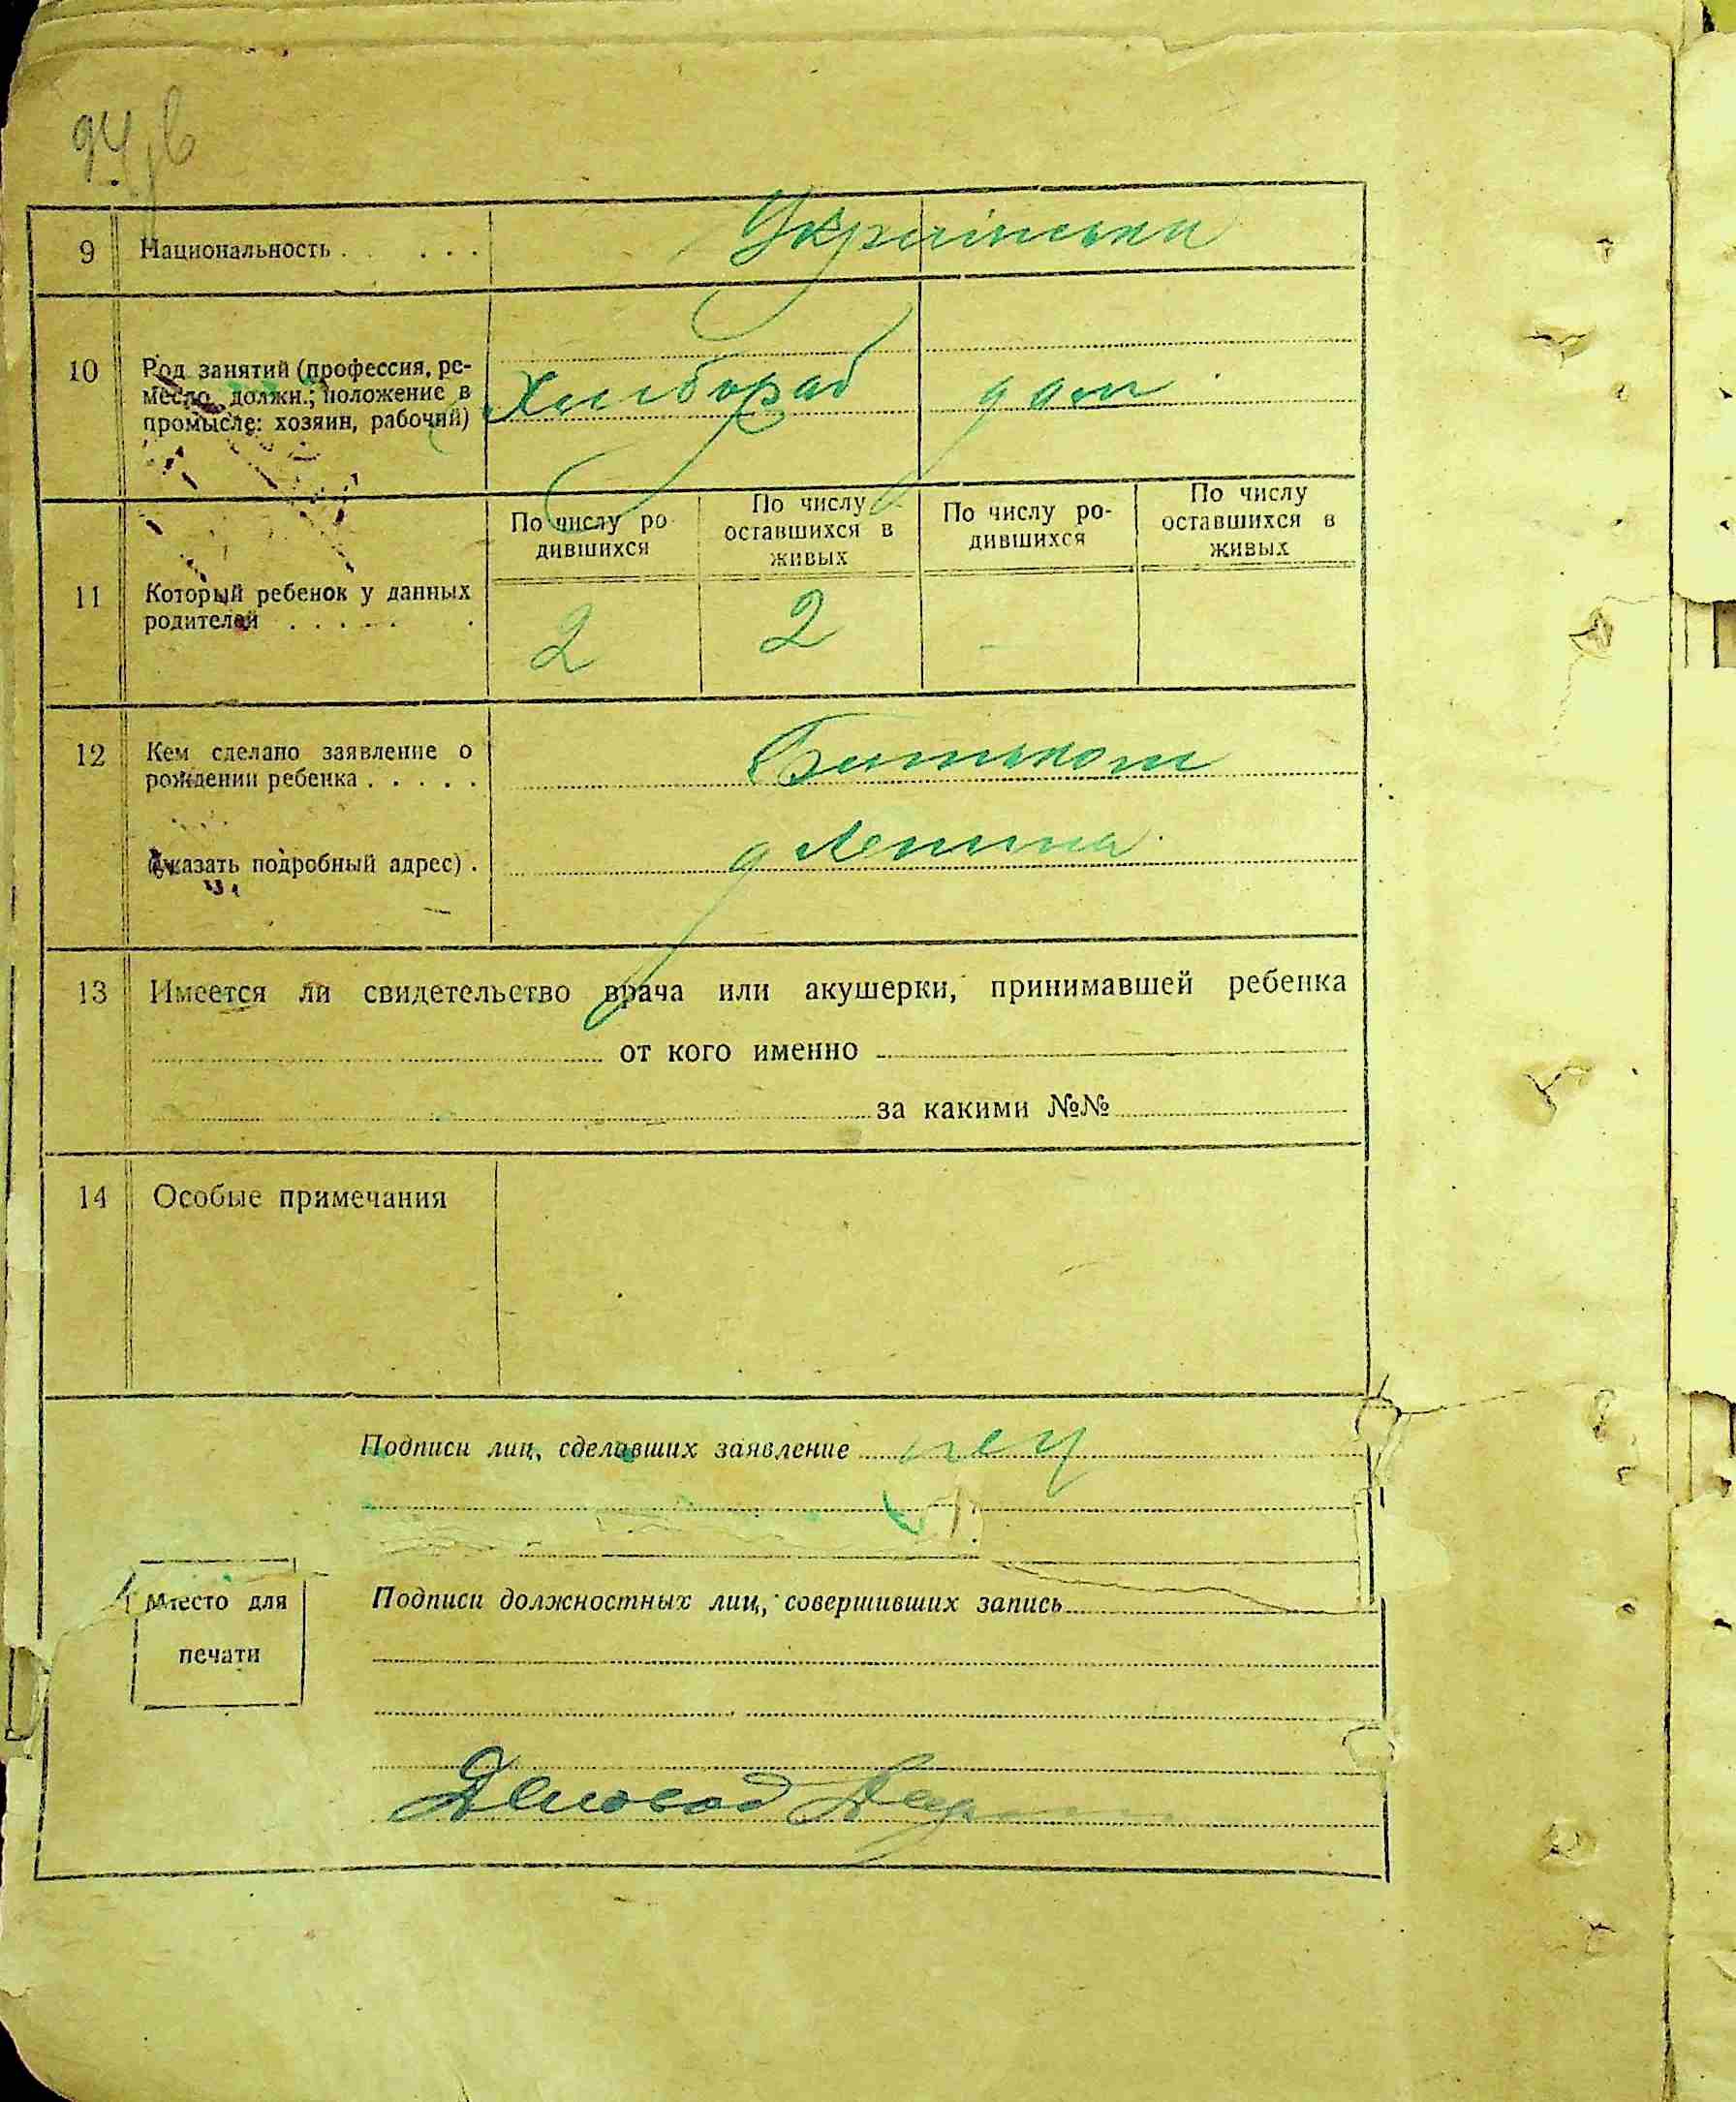 9 Национальность . . . . . Українськи
10 Род занятий (профессия, ре-
месло, должн.; положение в
промысле: хозяин, рабочий)
Хлибороб дом
11 Который ребенок у данных
родителей . . . . . .
По числу ро-
дившихся
По числу
оставшихся в
живых
По числу ро-
дившихся
По числу
оставшихся в
живых
2 2
12 Кем сделано заявление о
рождении ребенка . . . . . Батьком
(указать подробный адрес) . д Ленина
13 Имеется ли свидетельство врача или акушерки, принимавшей ребенка
от кого именно
за какими №№
14 Особые примечания
Подписи лиц, сделавших заявление
Место для
печати
Подписи должностных лиц, совершивших запись